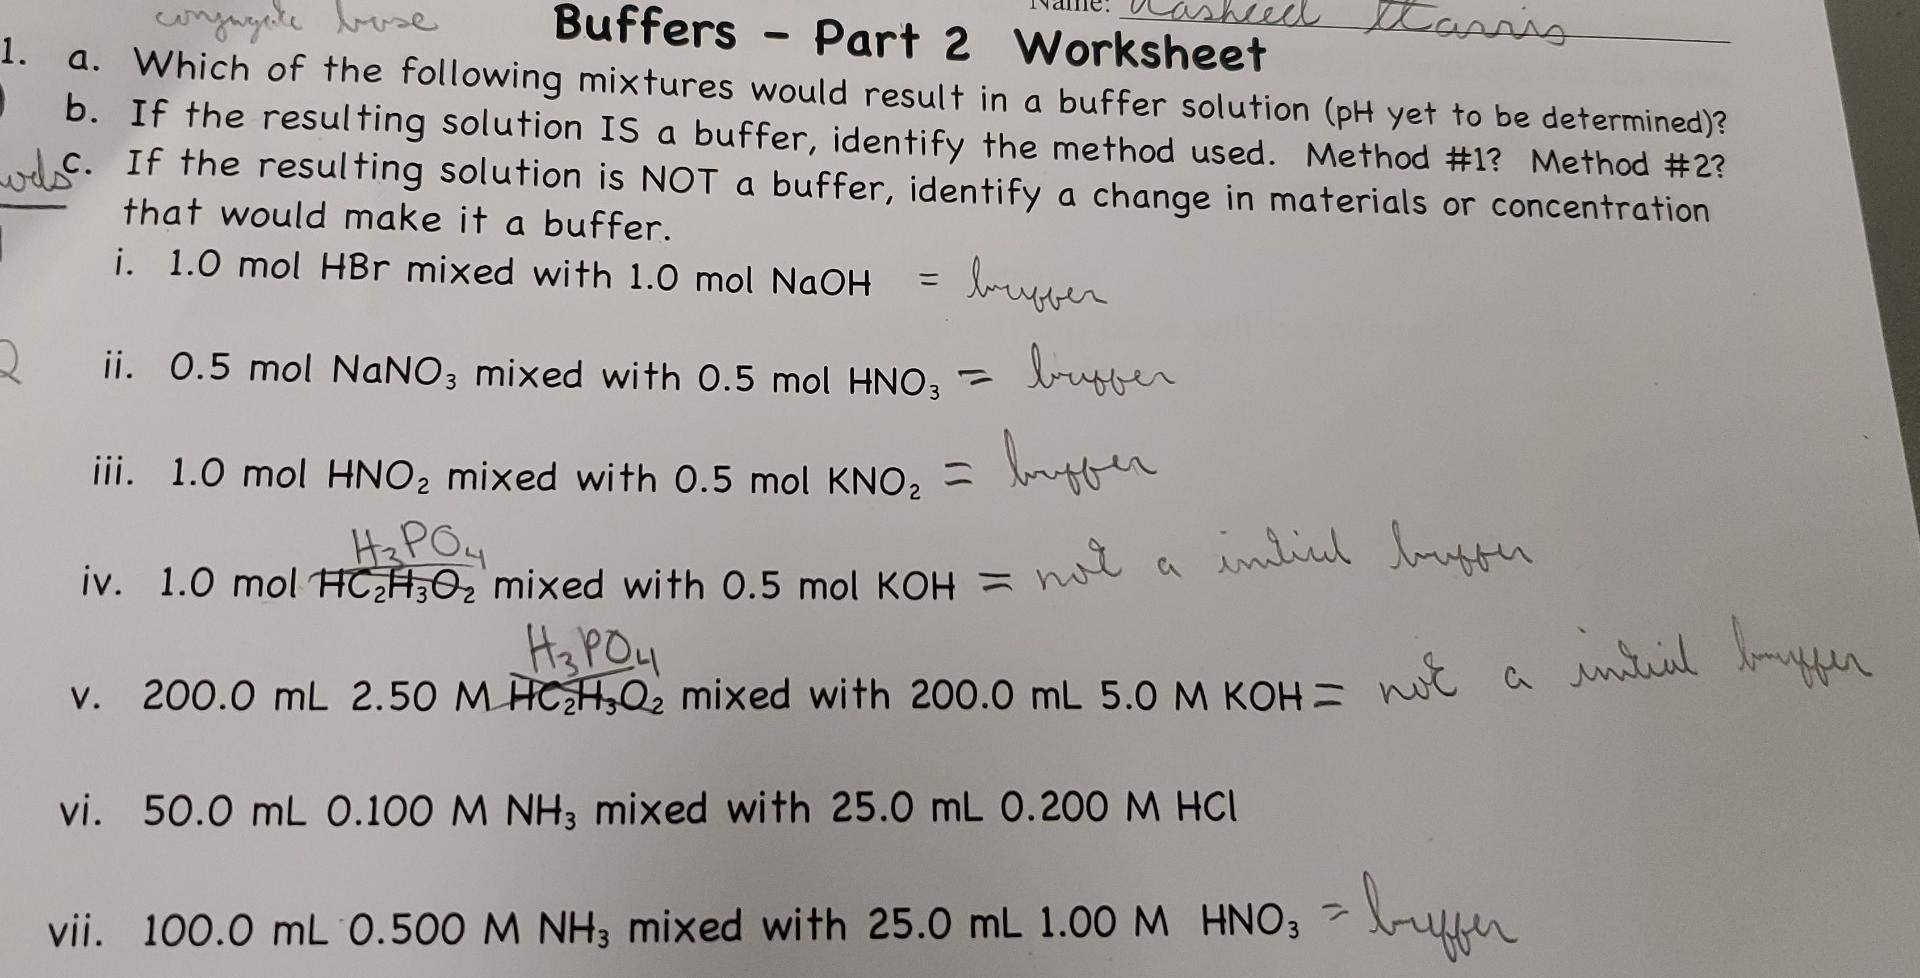 conjugate base
Name: Rasheed Harris
Buffers - Part 2 Worksheet
1. a. Which of the following mixtures would result in a buffer solution (pH yet to be determined)?
b. If the resulting solution IS a buffer, identify the method used. Method #1? Method #2?
c. If the resulting solution is NOT a buffer, identify a change in materials or concentration
that would make it a buffer.
i. 1.0 mol HBr mixed with 1.0 mol NaOH = buffer
ii. 0.5 mol NaNO₃ mixed with 0.5 mol HNO₃ = buffer
iii. 1.0 mol HNO₂ mixed with 0.5 mol KNO₂ = buffer
H₃PO₄
iv. 1.0 mol HC₂H₃O₂ mixed with 0.5 mol KOH = not a initial buffer
H₃PO₄
v. 200.0 mL 2.50 M HC₂H₃O₂ mixed with 200.0 mL 5.0 M KOH = not a initial buffer
vi. 50.0 mL 0.100 M NH₃ mixed with 25.0 mL 0.200 M HCl
vii. 100.0 mL 0.500 M NH₃ mixed with 25.0 mL 1.00 M HNO₃ = buffer